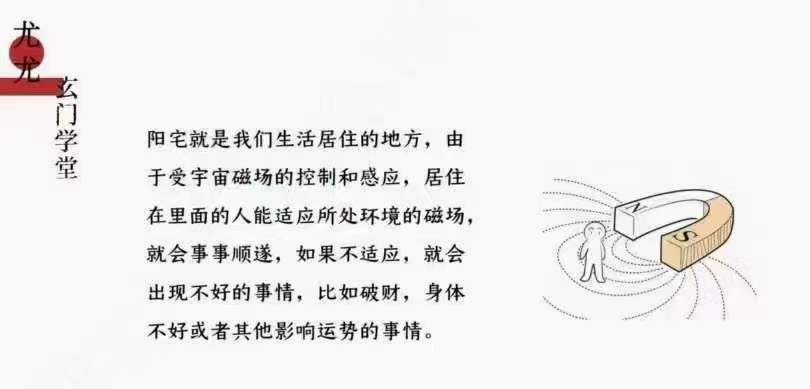 尤尤
玄门学堂
阳宅就是我们生活居住的地方，由
于受宇宙磁场的控制和感应，居住
在里面的人能适应所处环境的磁场，
就会事事顺遂，如果不适应，就会
出现不好的事情，比如破财，身体
不好或者其他影响运势的事情。
N
S